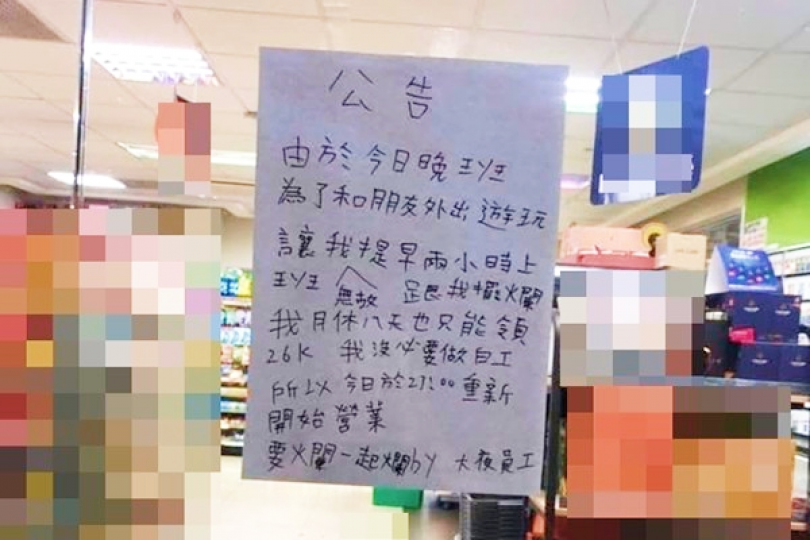 公告
由於今日晚班
為了和朋友外出遊玩
讓我提早兩小時上
班 無故 跟我擺爛
我月休八天也只能領
26K 我沒必要做白工
所以 今日於23:00 重新
開始營業
要爛一起爛by 大夜員工